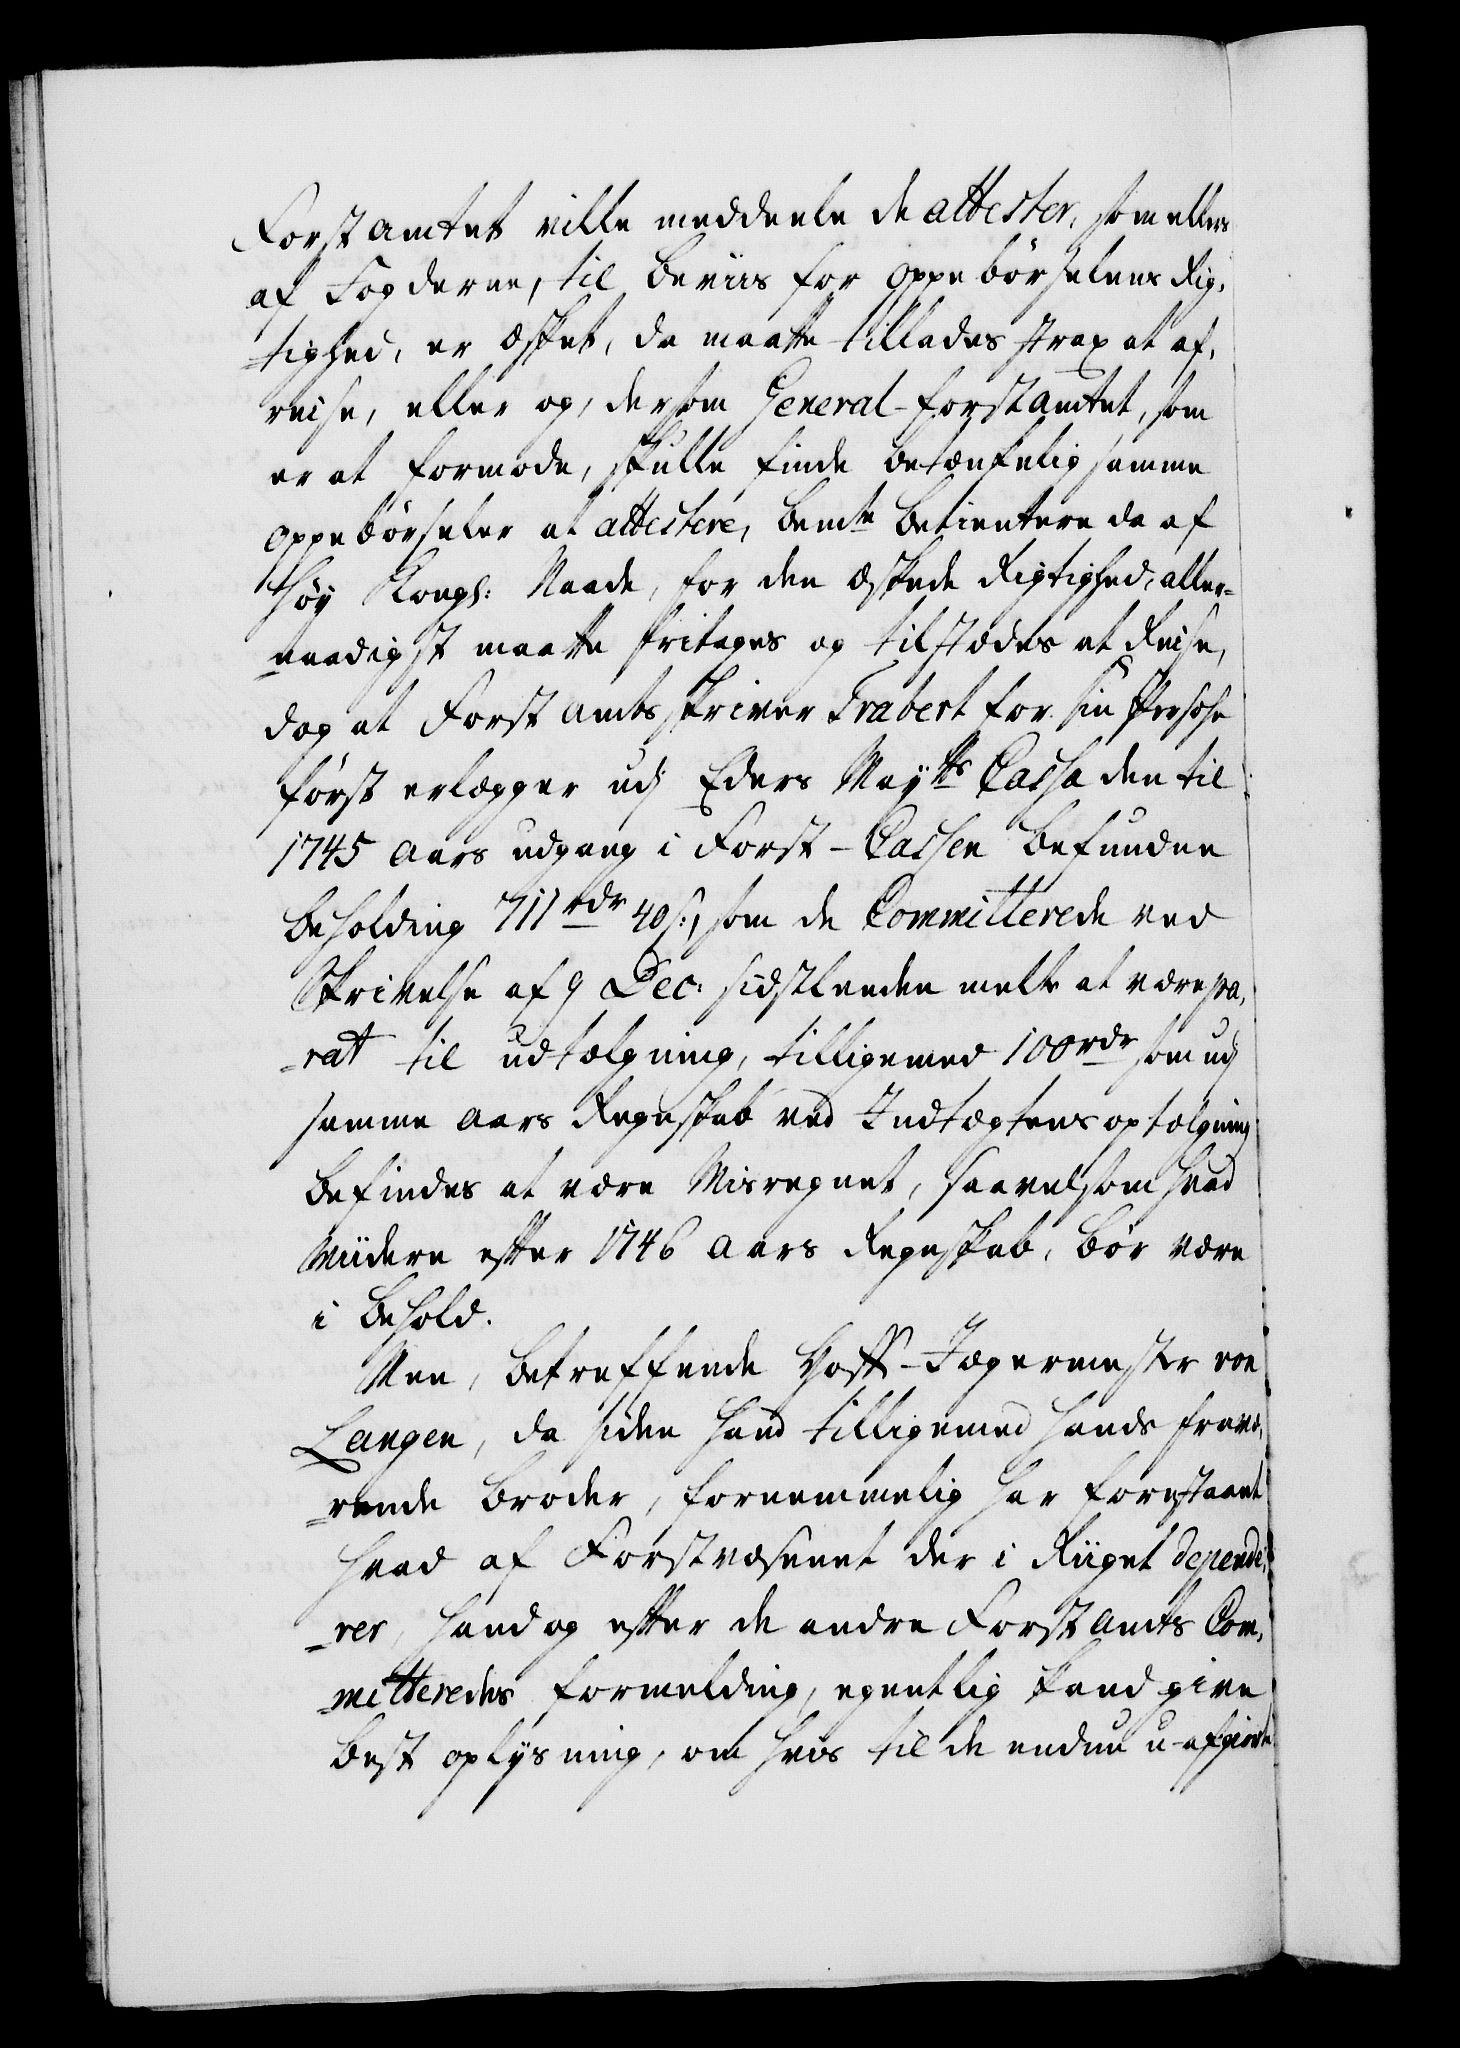 Forstamtet ville meddeele de attester, som ellers
af Fogderne, til beviis for oppebørselens Rig,
tighed, er æsket, da maatte tillades strax at af,
reise, eller og, dersom General-Forstamtet, som
er at formode, skulle finde betænkelig samme
oppebørseler at attestere, bemte betientere da af
Høy Kongl: Naade, for den æskede Rigtighed, aller-
naadigst maatte fritages og tilstædes at Reise,
dog at Forst amts skriver Trabert for sin Persohn
først erlægger udj Eders Mayts Cassa den til
1745 aars udgang i Forst-Cassen befundne
beholding 711 rdr 40 s:, som de Committerede ved
Skrivelse af 9 Dec: sidstleeden melte at være pa,
-rat til udtælgning, tilligemed 100 rdr som udj
samme aars Regnskab ved Indtægtens optælgning
befindes at være Misregnet, saavelsom hvad
Viidere efter 1746 aars Regnskab, bør være
i behold.
Men, betreffende Hoff-Jægermester von
Langen, da siden hand tilligemed hands fravæ,
-rende broder, fornemmelig har forestaaet
hvad af Forstvæsenet der i Riiget depende,
-rer, hand og efter de andre Forst amts Com,
-mitteredes formelding, egentlig kand give
best oplysning, om hvis til de endnu u-afgiorte